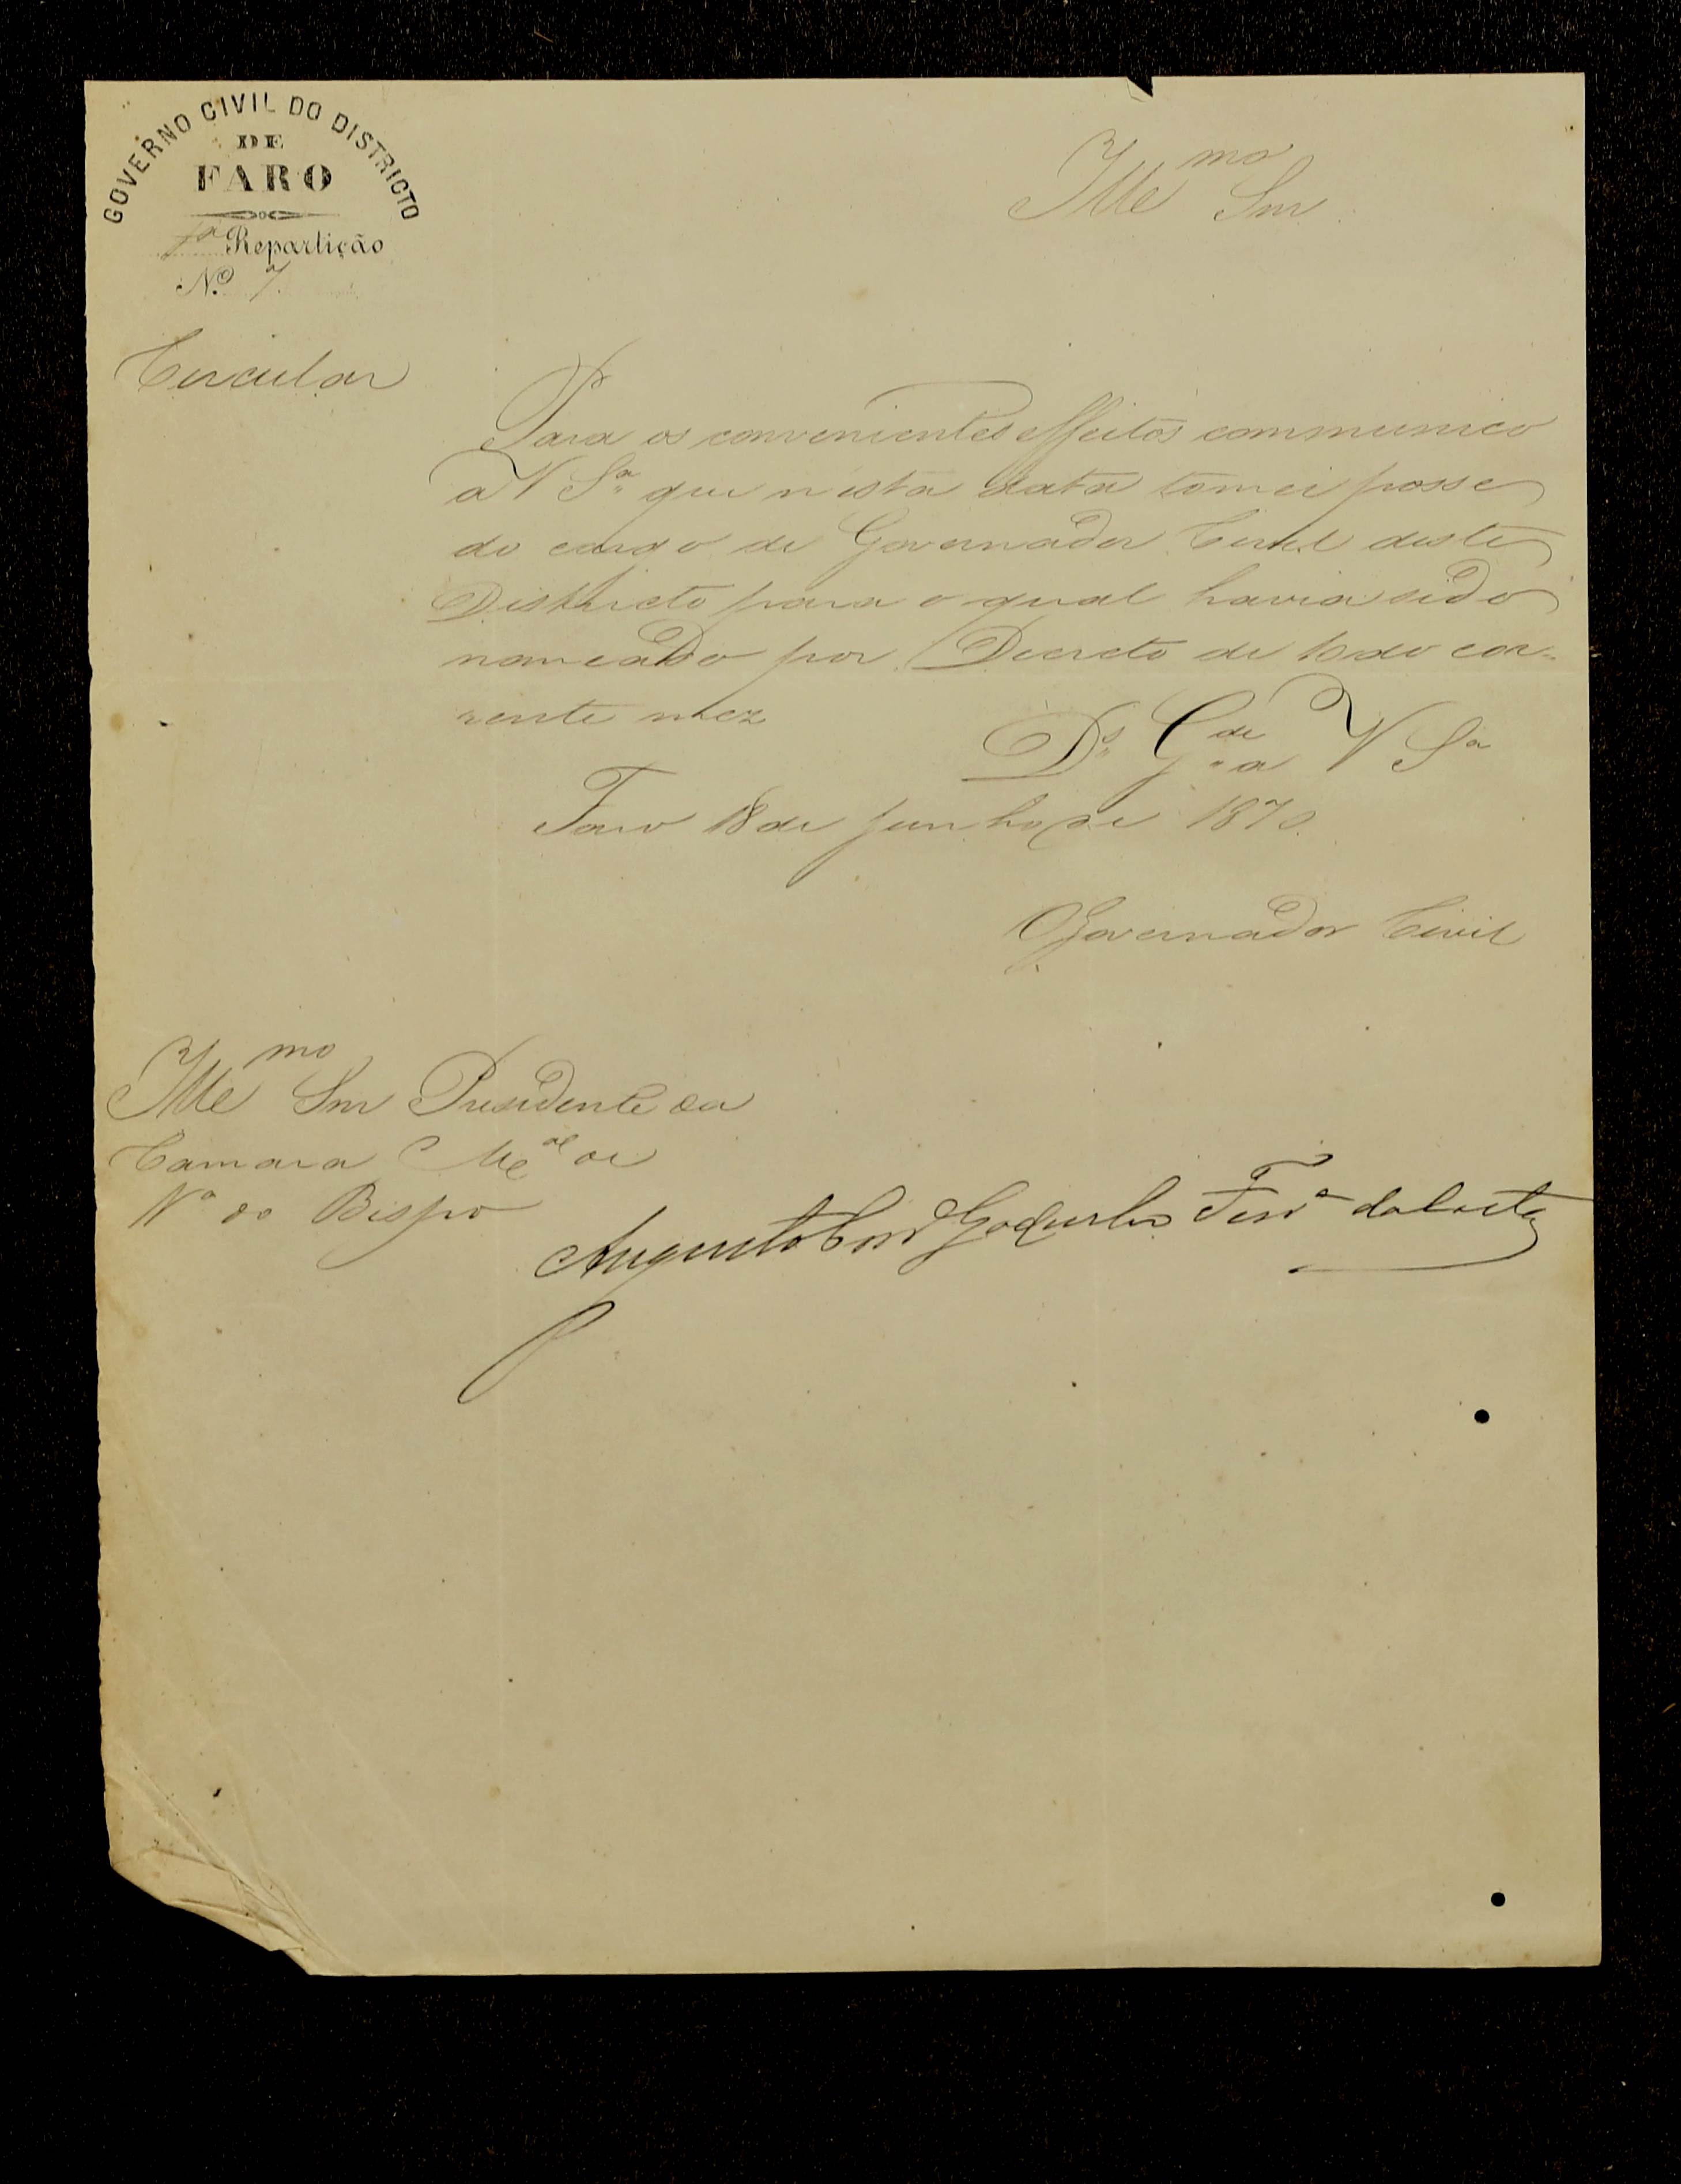 GOVERNO CIVIL DO DISTRICTO
DE
FARO
1ª Repartição
Nº 7
Circular
Illmo Snr
Para os convenientes effeitos communico
a V Sª que n'esta data tomei posse
do cargo de Governador Civil deste
Districto para o qual havia sido
nomeado por Decreto de 10 do cor-
rente mez
Ds Gde a V Sª
Faro 18 de Junho de 1870
O Governador Civil
Illmo Snr Presidente da
Camara Mal de
Vª do Bispo
Augusto Ferª da Costa